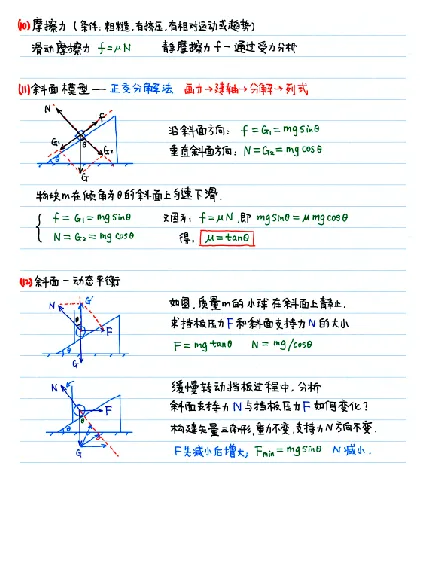 (10) 摩擦力 (条件: 粗糙, 有挤压, 有相对运动或趋势)
滑动摩擦力 f=μN 静摩擦力 f—通过受力分析
(11) 斜面模型——正交分解法 画力→建轴→分解→列式
N f G₁ G₂ G θ θ
沿斜面方向: f=G₁=mgsinθ
垂直斜面方向: N=G₂=mgcosθ
物块m在倾角为θ的斜面上匀速下滑.
f=G₁=mgsinθ 又因为: f=μN, 即 mgsinθ=μmgcosθ
N=G₂=mgcosθ 得: μ=tanθ
斜面—动态平衡
N G' F G θ
如图, 质量m的小球在斜面上静止.
求挡板压力F和斜面支持力N的大小
F=mgtanθ N=mg/cosθ
N F G θ
缓慢转动挡板过程中, 分析
斜面支持力N与挡板压力F如何变化?
构建矢量三角形, 重力不变, 支持力N方向不变.
F先减小后增大; Fmin=mgsinθ N减小.